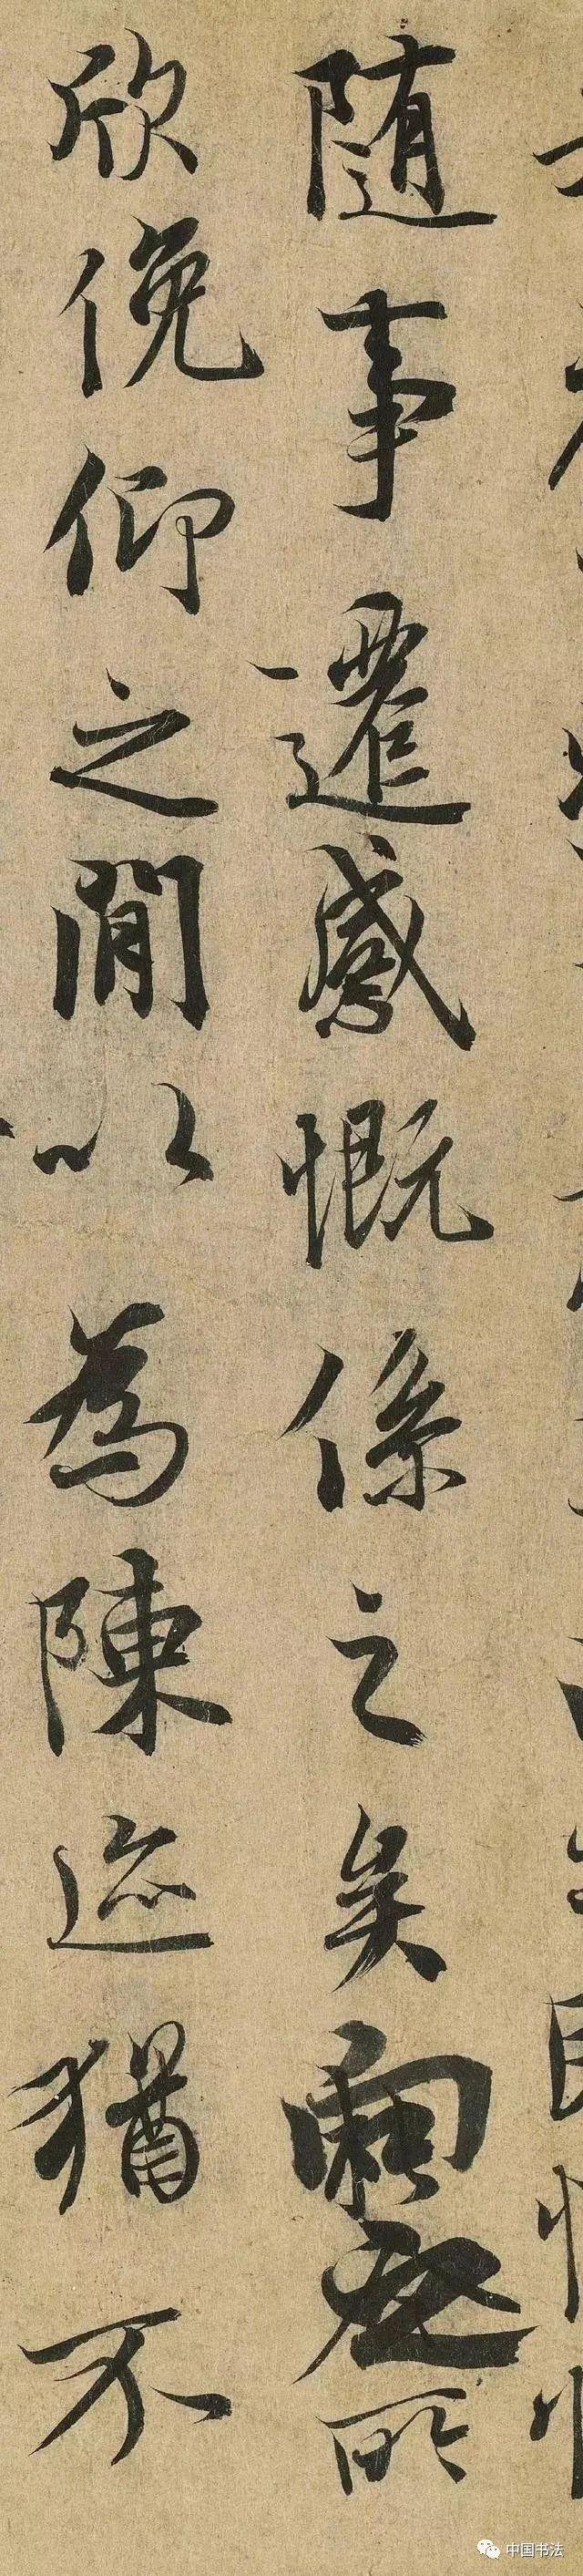 随事遷感慨係之矣向之所
欣俛仰之間以為陳迹猶不
中国书法